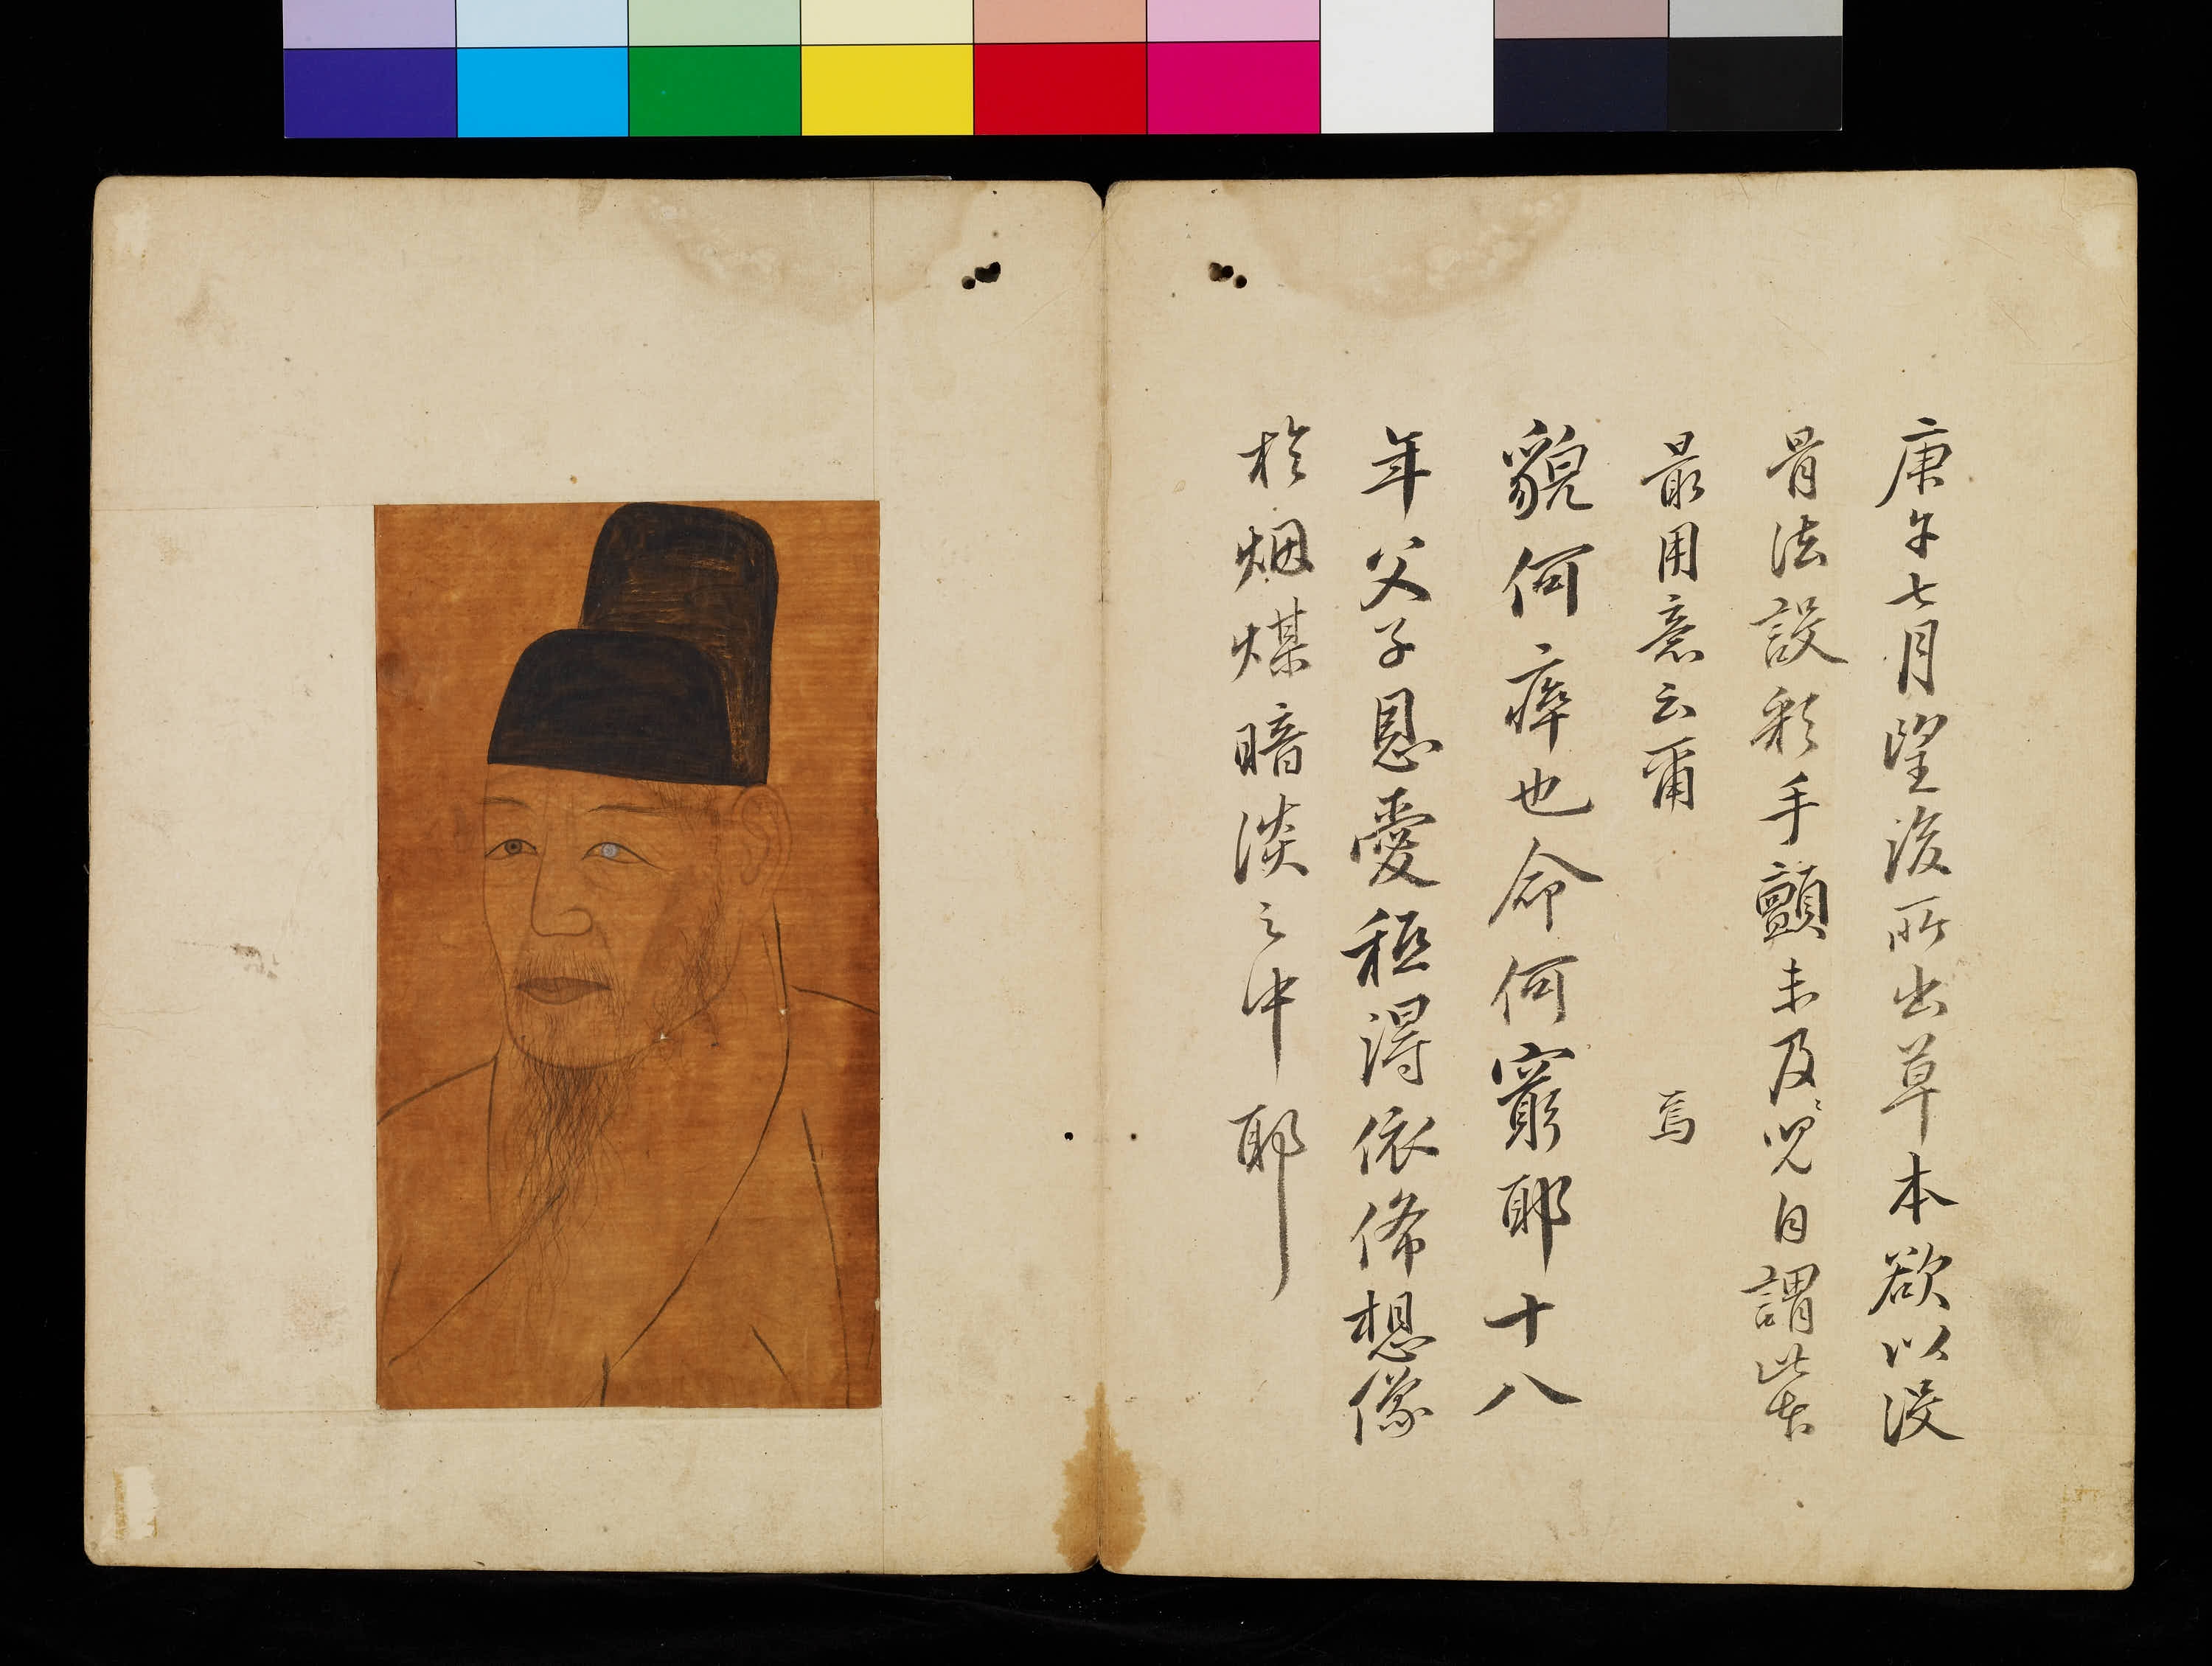 庚午七月望後所出草本欲以沒
骨法設彩手顫未及兒自謂此本
最用意云爾 焉
貌何瘁也命何窮耶十八
年父子恩愛秪得依俙想像
於烟煤暗淡之中耶